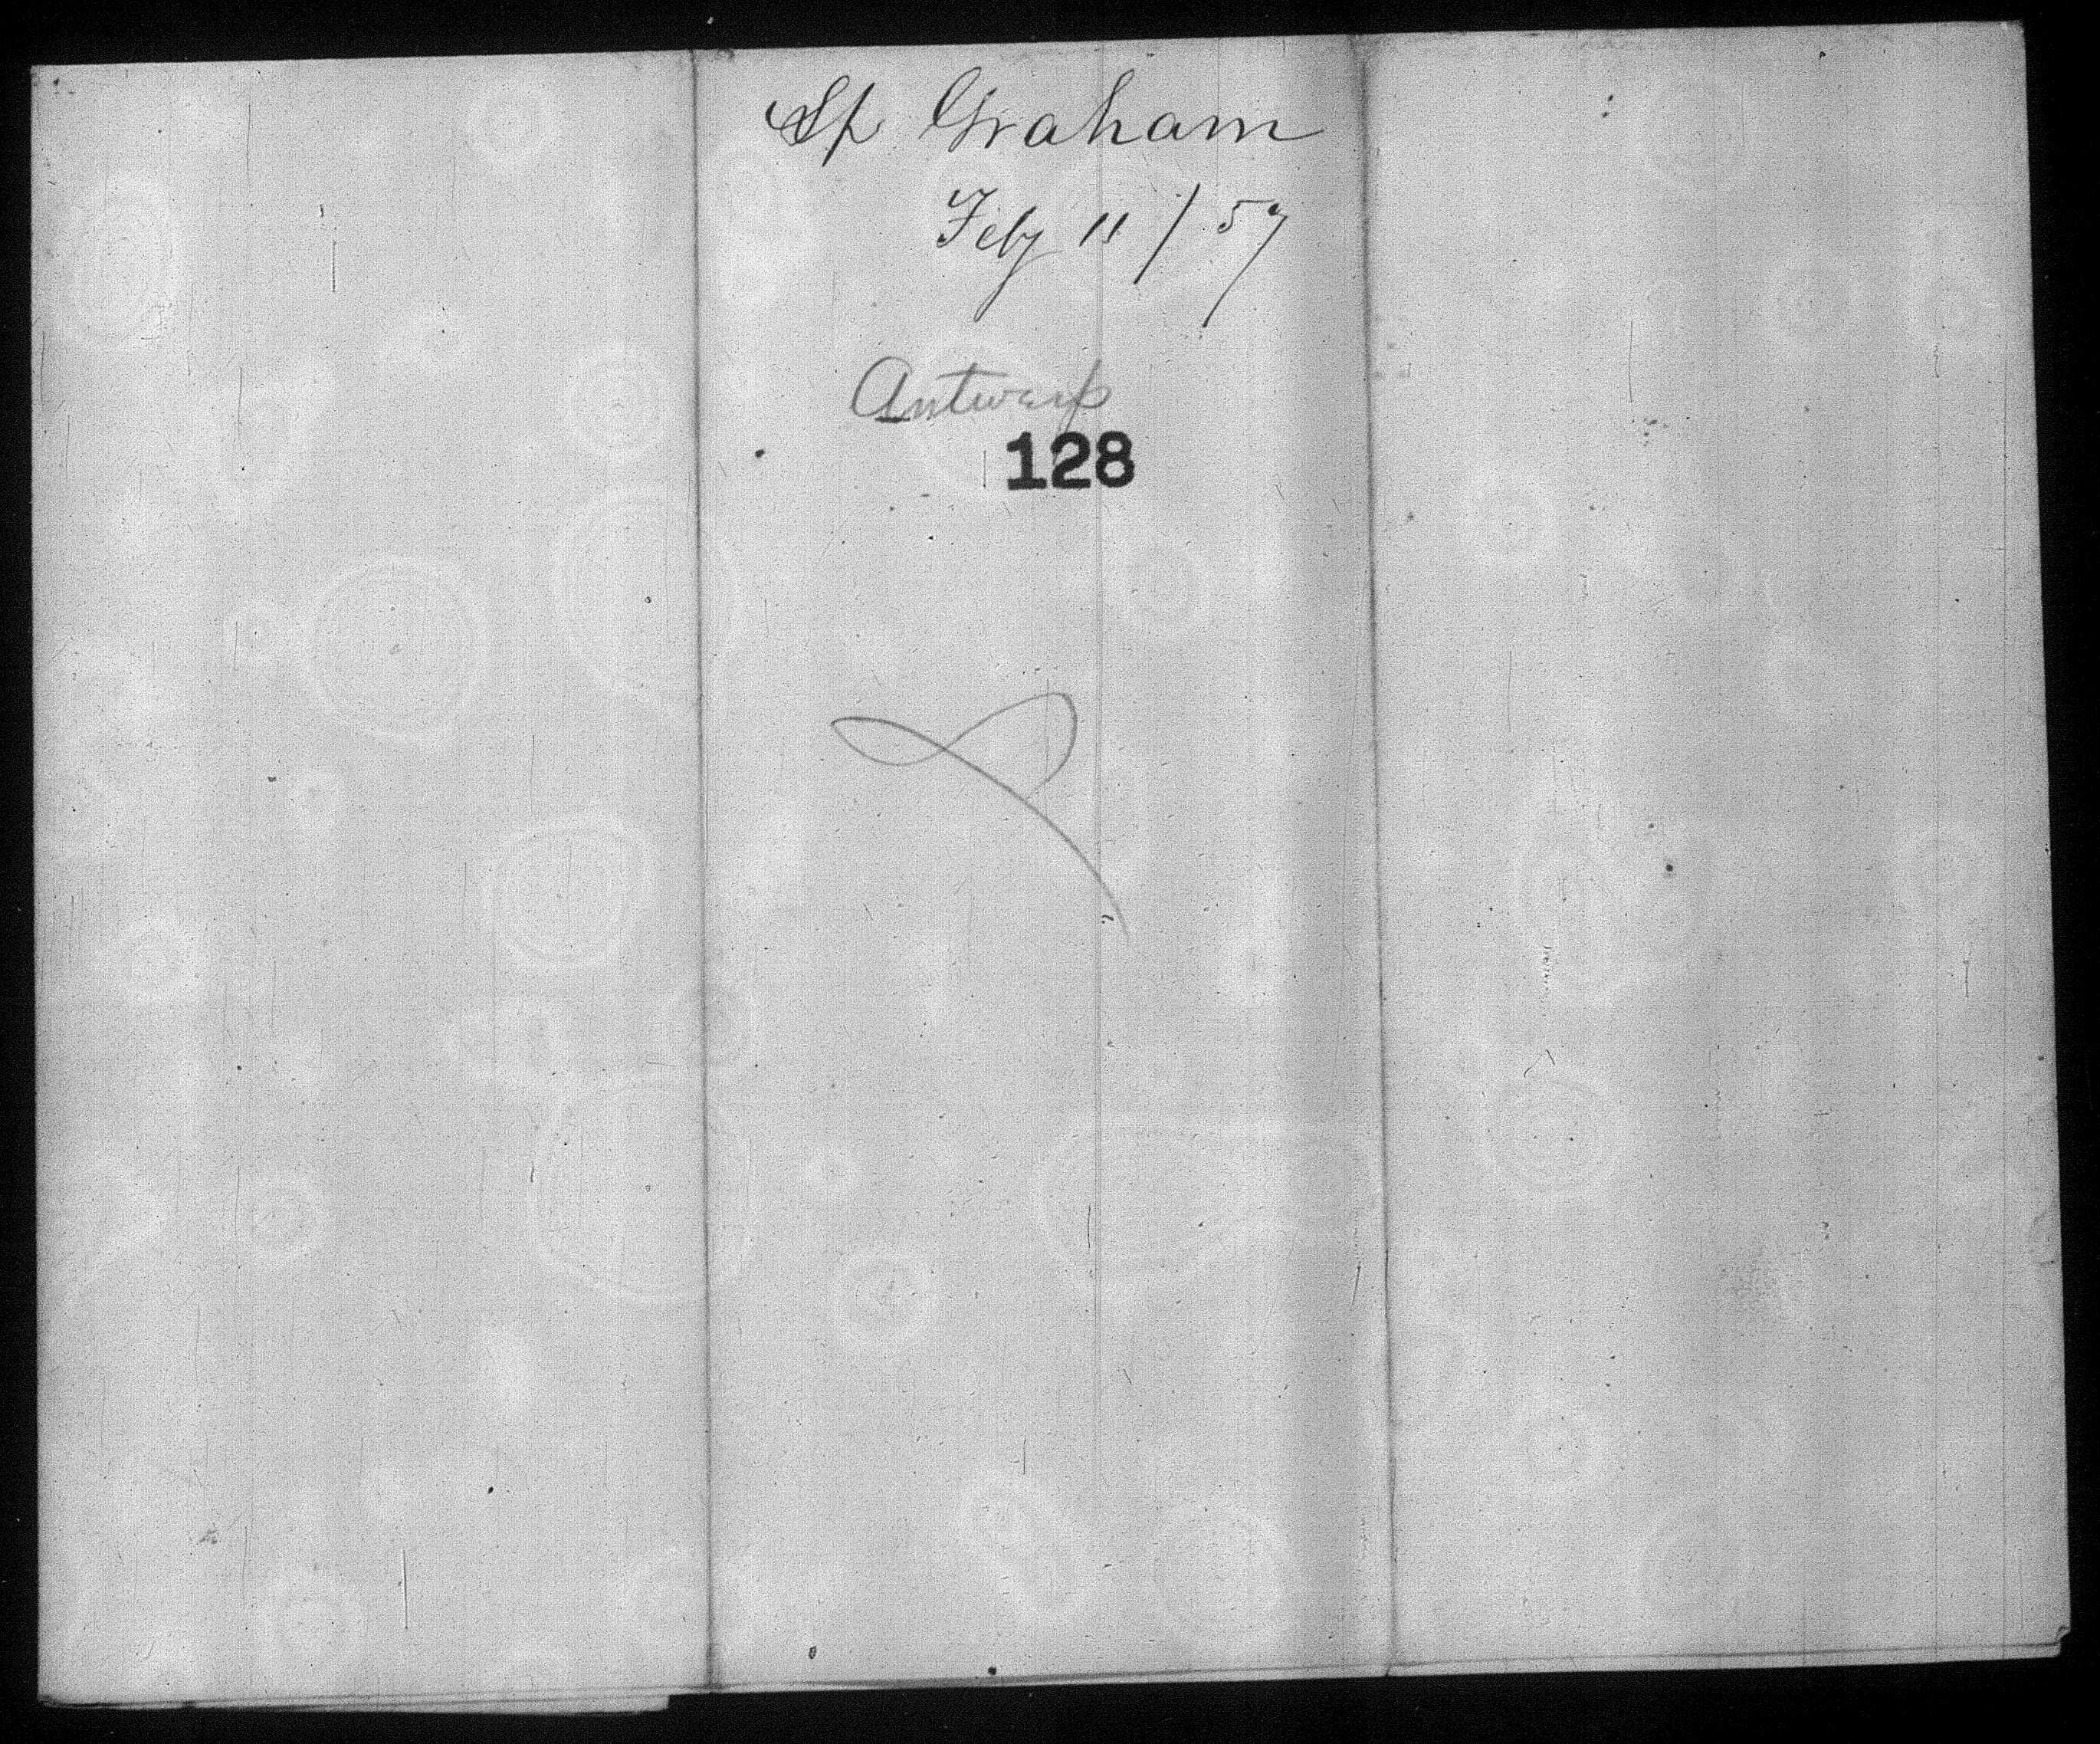 Sp Graham
Feby 11 / 57
Antwerp
128